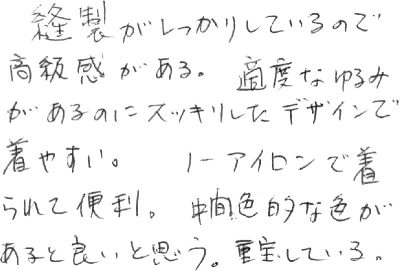 縫製がしっかりしているので
高級感がある。 適度なゆるみ
があるのにスッキリしたデザインで
着やすい。 ノーアイロンで着
られて便利。 中間色的な色が
あると良いと思う。重宝している。